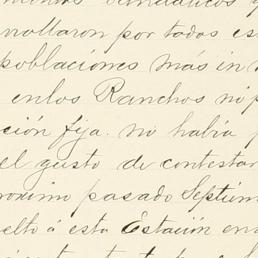 vandálicos q
nollaron por todos es
poblaciones más in
en los Ranchos ni p
ción fija. no había p
el gusto de contestar
roximo pasado Septiem
elto á esta Estación en